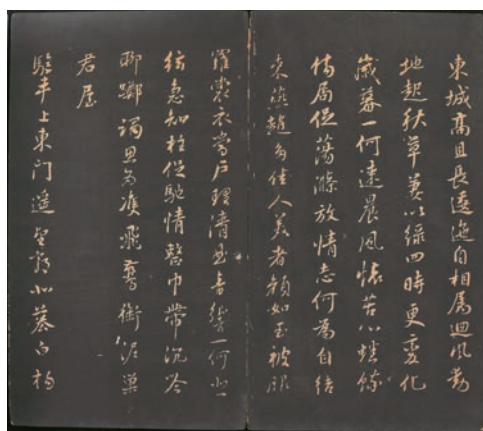 東城高且長逶迤自相属迴風動
地起秋草萋以綠四時更變化
歲暮一何速晨風懷苦心蟋蟀
傷局促蕩滌放情志何為自結
束燕趙多佳人美者顏如玉被服
羅裳衣當戶理清曲音響一何悲
絃急知柱促馳情整巾帶沉吟
聊躑躅思為雙飛鷰銜泥巢
君屋
驅車上東门遙望郭北墓白楊